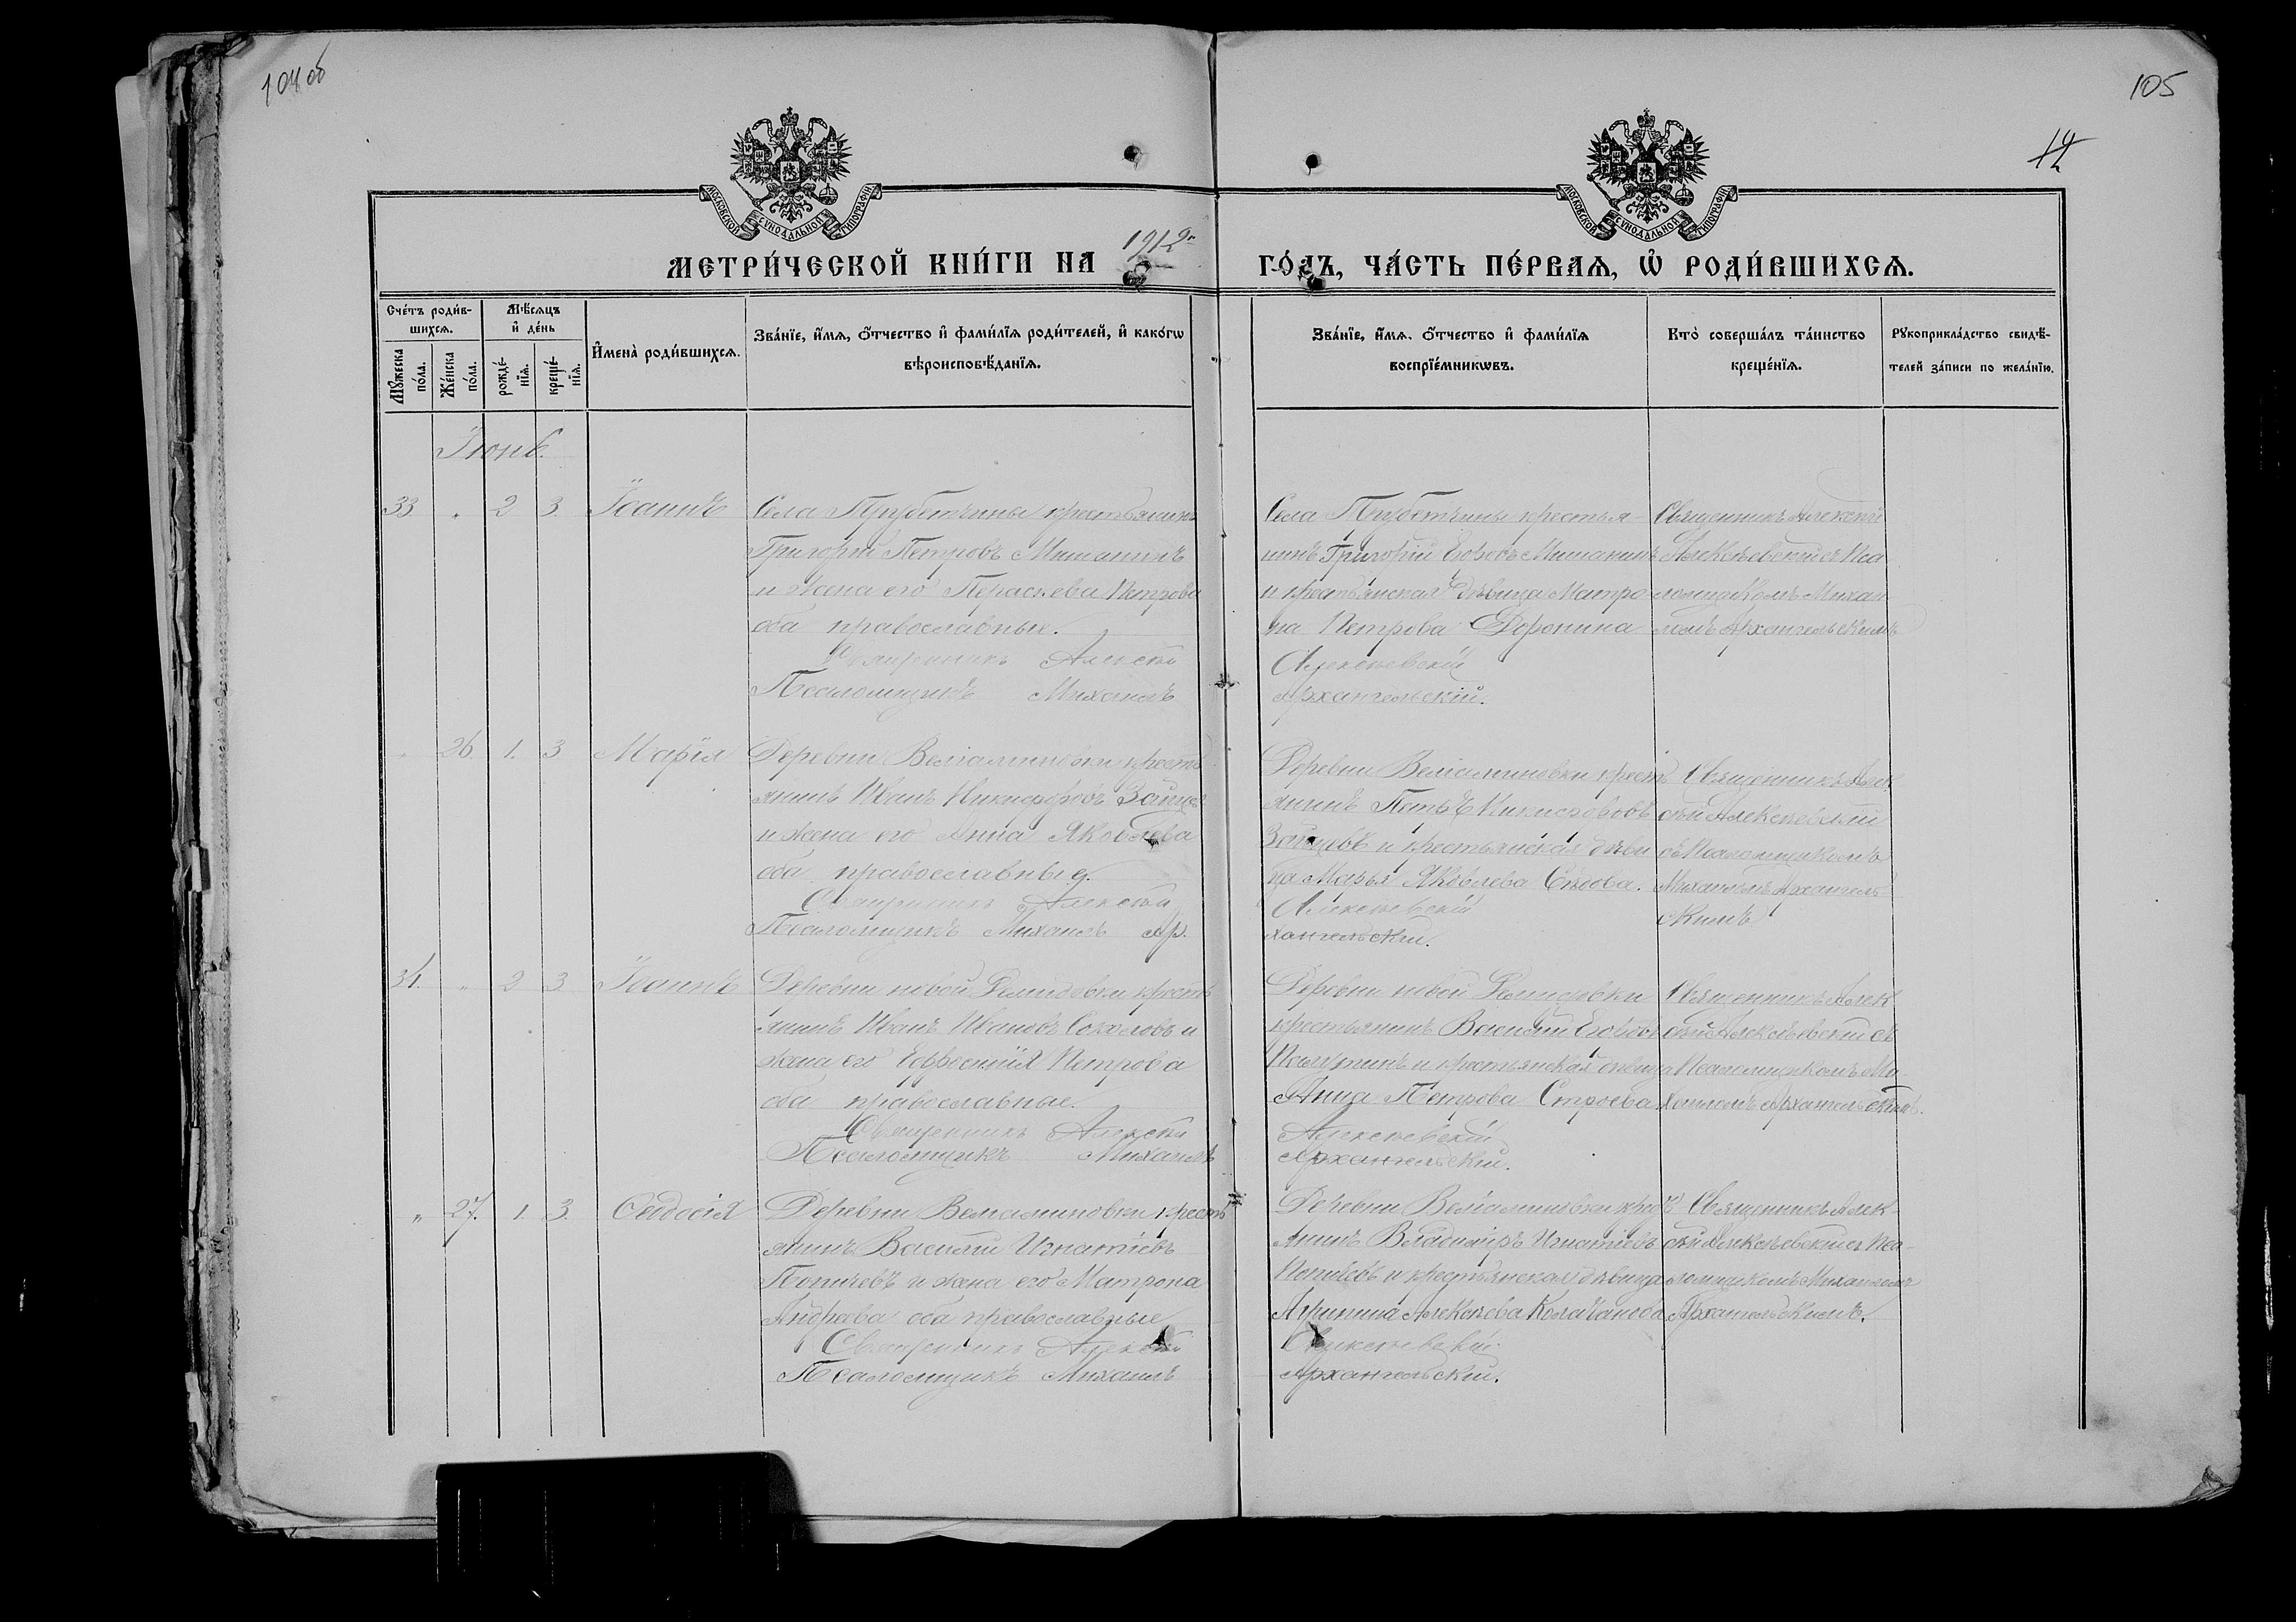 104 об
105
12
МОСКОВСКОЙ СѴНОДАЛЬНОЙ ТИПОГРАФІИ
МОСКОВСКОЙ СѴНОДАЛЬНОЙ ТИПОГРАФІИ
МЕТРИ́ЧЕСКОЙ КНИ́ГИ НА 1912 г. ГО́ДЪ, ЧА́СТЬ ПЕ́РВАѦ, Ѽ РОДИ́ВШИХСѦ.
Сче́тъ роди́в-
шихсѧ.
Мꙋ́жеска по́ла.
Же́нска по́ла.
Мѣ́сѧцъ и҆ де́нь
рожде́-нїѧ.
креще́-нїѧ.
И҆мена̀ роди́вшихсѧ.
Зва́нїе, и҆́мѧ, ѻ҆́тчество и҆ фами́лїѧ роди́телей, и҆ како́гѡ
вѣроисповѣ́данїѧ.
Зва́нїе, и҆́мѧ, ѻ҆́тчество и҆ фами́лїѧ
воспрїе́мникѡвъ.
Кто̀ соверша́лъ та́инство
креще́нїѧ.
Рꙋкоприкла́дство свидѣ́-
телей за́писи по жела́нїю.
Іюнь.
33 " 2 3. Іоаннъ
Села крестьянинъ
Григорій Петровъ Мишанинъ
и жена его Параскева Петрова
оба православные.
Священникъ Алексѣй
Псаломщикъ Михаилъ
Села крестья-
нинъ Григорій Егоровъ Мишанинъ
и крестьянская дѣвица Матро-
на Петрова Доронина
Алексѣевскій
Архангельскій.
Священникъ Алексѣй
Алексѣевскій съ Пса
ломщикомъ Михаи
ломъ Архангельскимъ
" 26. 1. 3 Марія
Деревни Веліаминовки кресть
янинъ Иванъ Никифоровъ Зайцев
и жена его Анна Яковлева
оба православные.
Священникъ Алексѣй
Псаломщикъ Михаилъ Ар.
Деревни Веліаминовки кресть
янинъ Петръ Никифоровъ
Зайцевъ и крестьянская дѣви
ца Марья Яковлева
Алексѣевскій
хангельскій.
Священникъ Алек
сѣй Алексѣевскій
съ Псаломщикомъ
Михаиломъ Архангель
скимъ
34. " 2 3 Іоаннъ
Деревни новой кресть
янинъ Иванъ Ивановъ Соколовъ и
жена его Евфросинія Петрова
оба православные.
Священникъ Алексѣй
Псаломщикъ Михаилъ
Деревни новой
крестьянинъ Василій Егоровъ
и крестьянская дѣвица
Анна Петрова Строева
Алексѣевскій
Архангельскій.
Священникъ Алек
сѣй Алексѣевскій съ
Псаломщикомъ Ми-
хаиломъ Архангельскимъ.
" 27. 1. 3. Ѳеодосія
Деревни Веліаминовки кресть
янинъ Василій Игнатіевъ
и жена его Матрона
Андреева оба православные
Священникъ Алексѣй
Псаломщикъ Михаилъ
Деревни Веліаминовки крест
янинъ Владиміръ Игнатіевъ
и крестьянская дѣвица
Агрипина Алексѣева
Алексѣевскій.
Архангельскій.
Священникъ Алек-
сѣй Алексѣевскій съ Пса-
ломщикомъ Михаиломъ
Архангельскимъ.